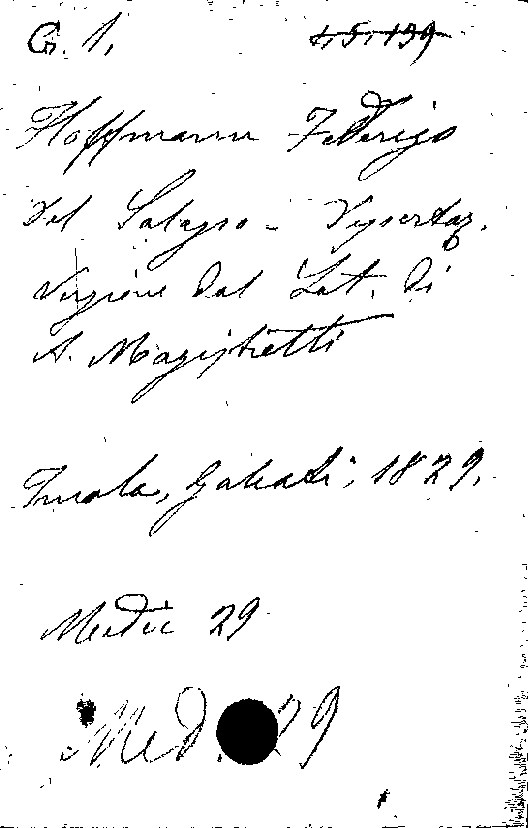 G. 1,
4.5.139
Hoffmann Federigo
Del Salasso - Dissertaz.
Versione dal Lat. di
A. Magistretti
Imola, Galeati, 1829.
Medic 29
Med. 29